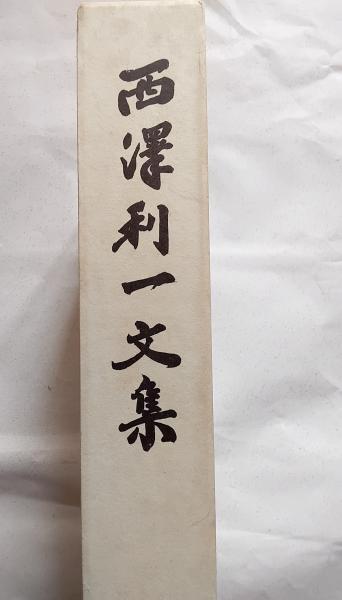 西澤利一文集